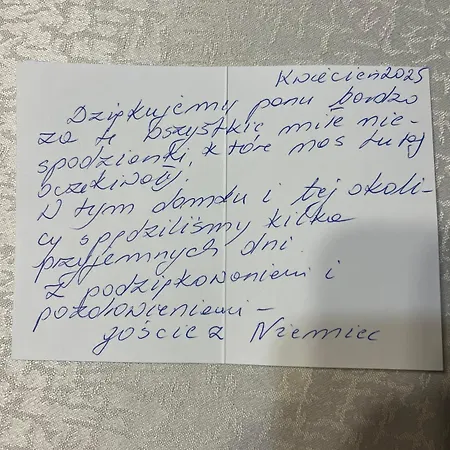 Kwiecień 2025
Dziękujemy panu bardzo
za te wszystkie miłe nie-
spodzianki, które nas tutaj
oczekiwały.
W tym domku i tej okoli-
cy spędziliśmy kilka
przyjemnych dni.
Z podziękowaniem i
pozdrowieniami -
goście z Niemiec